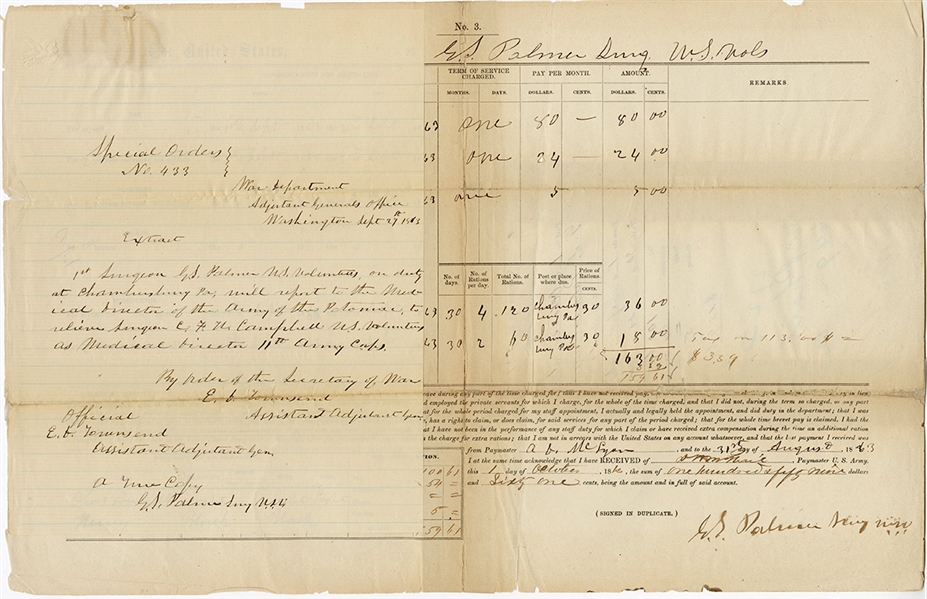 Special Orders
No. 433
War Department
Adjutant Generals Office
Washington Sept 29th 1863
Extract
1st Surgeon G.S. Palmer U.S. Volunteers, on duty
at Chambersburg Pa, will report to the Med-
ical Director of the Army of the Potomac, to
relieve Surgeon C. F. H. Campbell U.S. Volunteers
as Medical Director 11th Army Corps.
By Order of the Secretary of War
E. D. Townsend
Assistant Adjutant Gen
Official
E. D. Townsend
Assistant Adjutant Gen,
A True Copy
G.S. Palmer Surg U.S.V.
No. 3.
G.S. Palmer Surg. U.S. Vols
TERM OF SERVICE CHARGED. PAY PER MONTH. AMOUNT. REMARKS.
MONTHS. DAYS. DOLLARS. CENTS. DOLLARS. CENTS.
63 one 80 — 80 00
63 one 24 — 24 00
63 one 5 5 00
No. of days. No. of Rations per day. Total No. of Rations. Post or place where due. Price of Rations. CENTS.
63 30 4 120 Chambersburg Pa 30 36 00
63 30 2 60 Chambersburg Pa 30 18 00
Tax on 113.00 $ =
163 00
$3.39
3 39
159 61
have during any part of the time charged for; that I have not received pay,
d employed the private servants for which I charge, for the whole of the time charged, and that I did not, during the term so charged, or any part
at for the whole period charged for my staff appointment, I actually and legally held the appointment, and did duty in the department; that I was
, has a right to claim, or does claim, for said services for any part of the period charged; that for the whole time hereof pay is claimed. I had the
at I have not been in the performance of any staff duty for which I claim or have received extra compensation during the time an additional ration
n the charge for extra rations; that I am not in arrears with the United States on any account whatsoever, and that the last payment I received was
from Paymaster , and to the 31st day of August 1863
I at the same time acknowledge that I have RECEIVED of Paymaster U. S. Army,
this 1 day of October , 186 , the sum of one hundred & fifty nine dollars
and Sixty one cents, being the amount and in full of said account.
TION.
100 61
54 =
= =
5 =
59 61
(SIGNED IN DUPLICATE.)
G.S. Palmer Surg